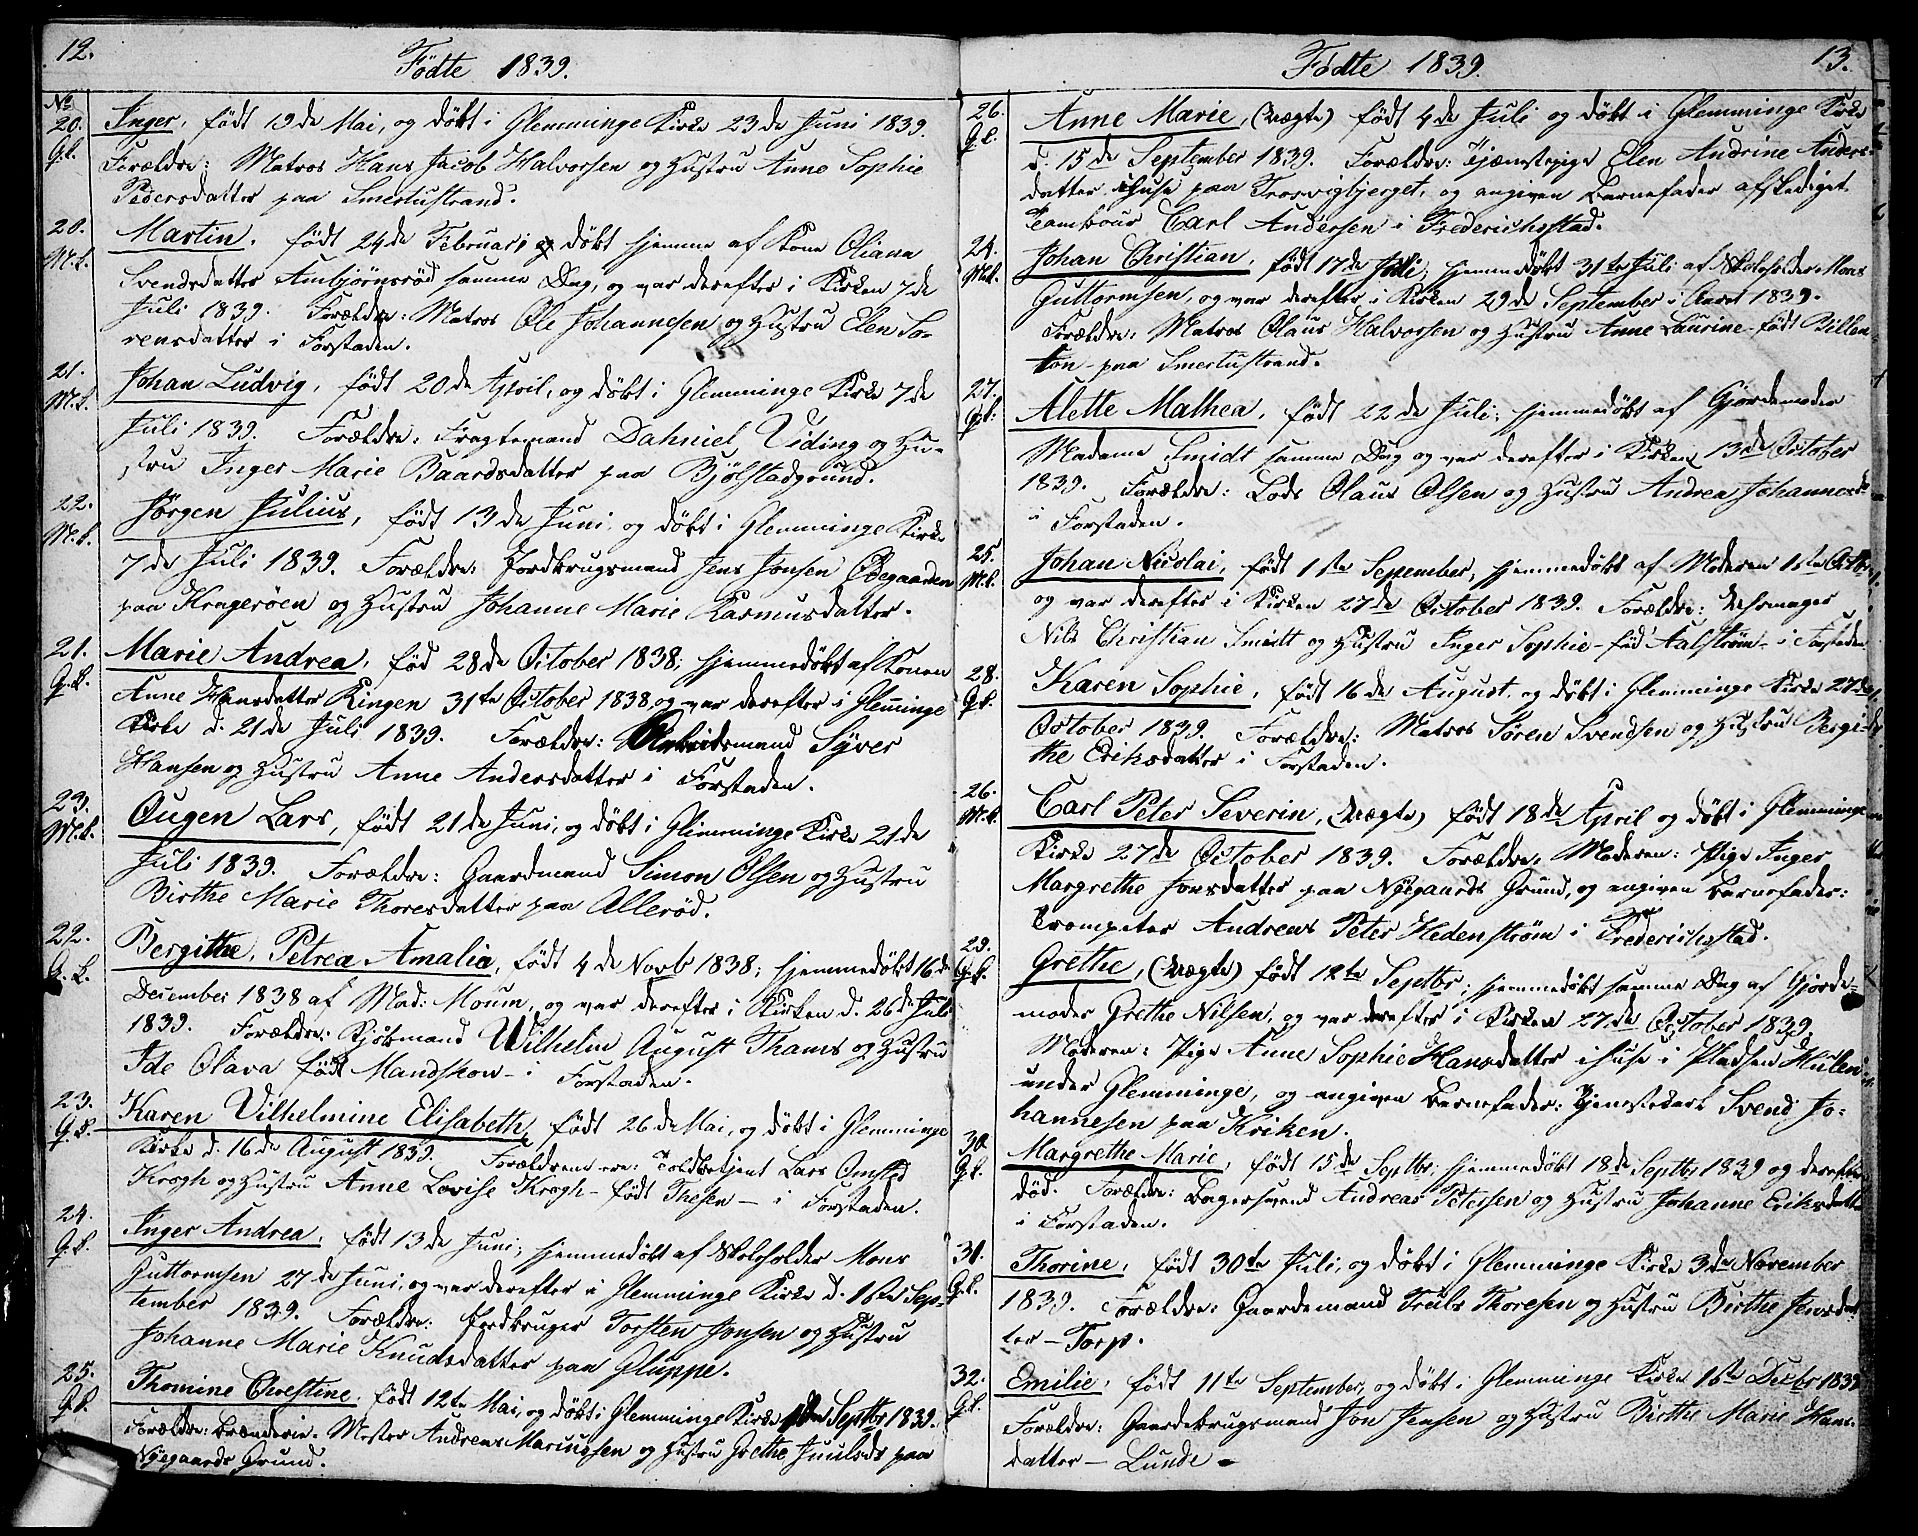 12.
Födte 1839.
No
20.
G.b.
Inger, født 19de Mai, og døbt i Glemminge Kirke 23de Juni 1839.
Forældre: Matros Hans Jacob Halvorsen og Hustru Anne Sophie
Pedersdatter paa Smertustrand.
20.
M.b.
Martin, født 24de Februari døbt hjemme af Kone Oliana
Svendsdatter Ambjörnsröd samme Dag, og var derefter i Kirken 7de
Juli 1839. Forældre: Matros Ole Johannesen og Hustru Elen So-
rensdatter i Forstaden.
21.
M.b.
Johan Ludvig, født 20de April, og døbt i Glemminge Kirke 7de
Juli 1839. Forældre: Fragtemand Dahniel Viding og Hu-
stru Inger Marie Baardsdatter paa Bjölstadgrund.
22.
M.b.
Jørgen Julius, født 13de Juni, og døbt i Glemminge Kirke
7de Juli 1839. Forældre: Jordbrugsmand Jens Jonsen Ødegaarden
paa Kragerøen og Hustru Johanne Marie Rasmusdatter.
21.
G.b.
Marie Andrea, fød 28de October 1838; hjemmedøbt af Konen
Anne Hansdatter Ringen 31te October 1838 og var derefter i Glemminge
Kirke d. 21de Juli 1839. Forældre: Arbeidsmand Syver
Hansen og Hustru Anne Andersdatter i Forstaden.
23.
M.b.
Ougen Lars, født 21de Juni, og døbt i Glemminge Kirke 21de
Juli 1839. Forældre: Gaardmand Simon Olsen og Hustru
Birthe Marie Thoresdatter paa Allerød.
22.
G.b.
Bergithe, Petrea Amalia, født 4de Novb 1838; hjemmedøbt 16de
December 1838 af Mad: Moum, og var derefter i Kirken d. 26de Juli
1839. Forældre: Kjøbmand Wilhelm August Thams og Hustru
Ide Olava født Mandskow - i Forstaden.
23.
G.b.
Karen Vilhelmine Elisabeth, født 26de Mai, og døbt i Glemminge
Kirke d. 16de August 1839. Forældrene ere: Toldbetjent Lars Omsted
Krogh og Hustru Anne Lovise Krogh - født Thesen - i Forstaden.
24.
G.b.
Inger Andrea, født 13de Juni; hjemmedøbt af Skoleholder Mons
Guttormsen 27de Juni, og var derefter i Glemminge Kirke d. 1ste Sep-
tember 1839. Forældre: Jordbruger Torsten Jonsen og Hustru
Johanne Marie Knudsdatter paa Gluppe.
25.
G.b.
Thomine Chrestine, født 12te Mai, og døbt i Glemminge Kirke Septbr 1839.
Forældre: Brænderie-Mester Andreas Mariussen og Hustru Grethe Juulsd. paa
Nygaards Grund.
Födte 1839.
13.
26.
G.b.
Anne Marie, (uægte) født 4de Juli og døbt i Glemminge Kirke
d. 15de September 1839. Forældre: Tjenestepige Elen Andrine Anders-
datter i Huse paa Trosvigbjerget, og angiven Barnefader afskediget
Tambour Carl Andersen i Frederichsstad.
24.
M.b.
Johan Christian, født 17de Juli; hjemmedøbt 31te Juli af Skoleholder Mons
Guttormsen, og var derefter i Kirken 29de September i Aaret 1839.
Forældre: Matros Olaus Halvorsen og Hustru Anne Laurine - født Billen-
ton - paa Smertustrand.
27.
G.b.
Alette Mathea, født 22de Juli; hjemmedøbt af Gjordemoder
Madame Smidt samme Dag og var derefter i Kirken 13de October
1839. Forældre: Lods Olaus Olsen og Hustru Andrea Johannesd.
i Forstaden.
25.
M.b.
Johan Nicolai, født 1ste September; hjemmedøbt af Moderen 1ste Octbr
og var derefter i Kirken 27de October 1839. Forældre: Uhrmager
Nils Christian Smidt og Hustru Inger Sophie - fød Aalstrøm - i Forstaden
28.
G.b.
Karen Sophie, født 16de August, og døbt i Glemminge Kirke 27de
October 1839. Forældre: Matros Søren Svendsen og Hustru Bergi-
the Eriksdatter i Forstaden.
26.
M.b.
Carl Peter Severin, (uægte) født 18de April og døbt i Glemminge
Kirke 27de October 1839. Forældre: Moderen: Pige Inger
Margrethe Jonsdatter paa Nyegaards Grund, og angiven Barnefader:
Trompeter Andreas Peter Hedenstrøm i Frederichsstad.
29.
G.b.
Grethe, (uægte) født 12te Septbr; hjemmedøbt samme Dag af Gjorde-
moder Grethe Nilsen, og var derefter i Kirken 27de October 1839.
Moderen: Pige Anne Sophie Hansdatter i Huse i Pladsen Hulen
under Glemminge, og angiven Barnefader: Tjenestekarl Svend Jo-
hannesen paa Kriken.
30.
G.b.
Margrethe Marie, født 15de Septbr; hjemmedøbt 18de Septbr 1839 og derefter
død. Forældre: Bagersvend Andreas Petersen og Hustru Johanne Eriksdatter
i Forstaden.
31.
G.b.
Thorine, født 30te Juli, og døbt i Glemminge Kirke 3de November
1839. Forældre: Gaardemand Truls Thoresen og Hustru Birthe Jensdat-
ter - Torp.
32.
G.b.
Emilie, født 11te September, og døbt i Glemminge Kirke 1ste Decbr 1839
Forældre: Gaardebrugsmand Jon Jensen og Hustru Birthe Marie Hans-
datter - Lunde -